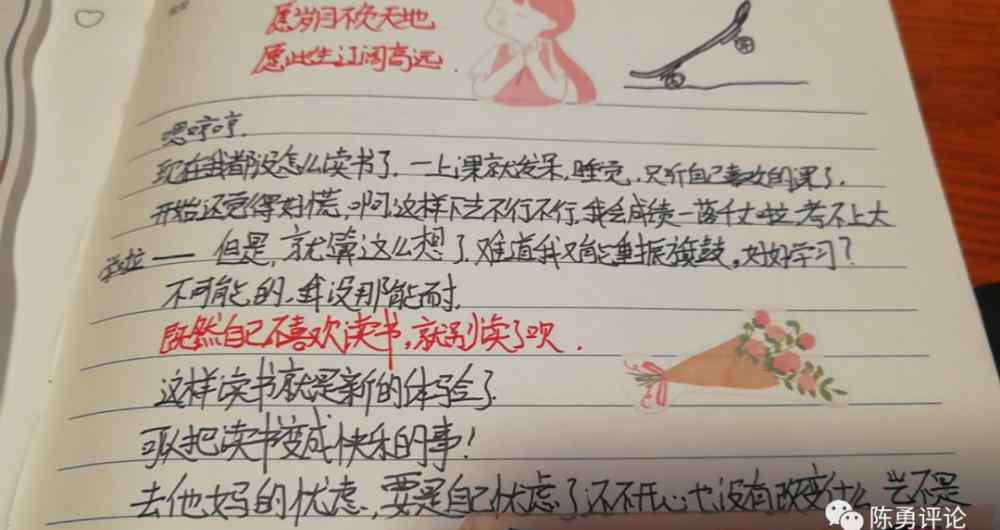 愿岁月不负天地
愿此生辽阔高远.
嗯哼哼.
现在我都没怎么读书了.一上课就发呆,睡觉,只听自己喜欢的课了.
开始还觉得好慌,啊,这样下去不行不行,我会成绩一落千丈啦 考不上大
学啦——但是,就算这么想了.难道我又能重振旗鼓,好好学习?
不可能的.我没那能耐.
既然自己不喜欢读书,就别读了呗.
这样读书就是新的体验了.
可以把读书变成快乐的事!
去他妈的忧虑,要是自己忧虑了还不开心也没有改变什么,岂不是
陈勇评论